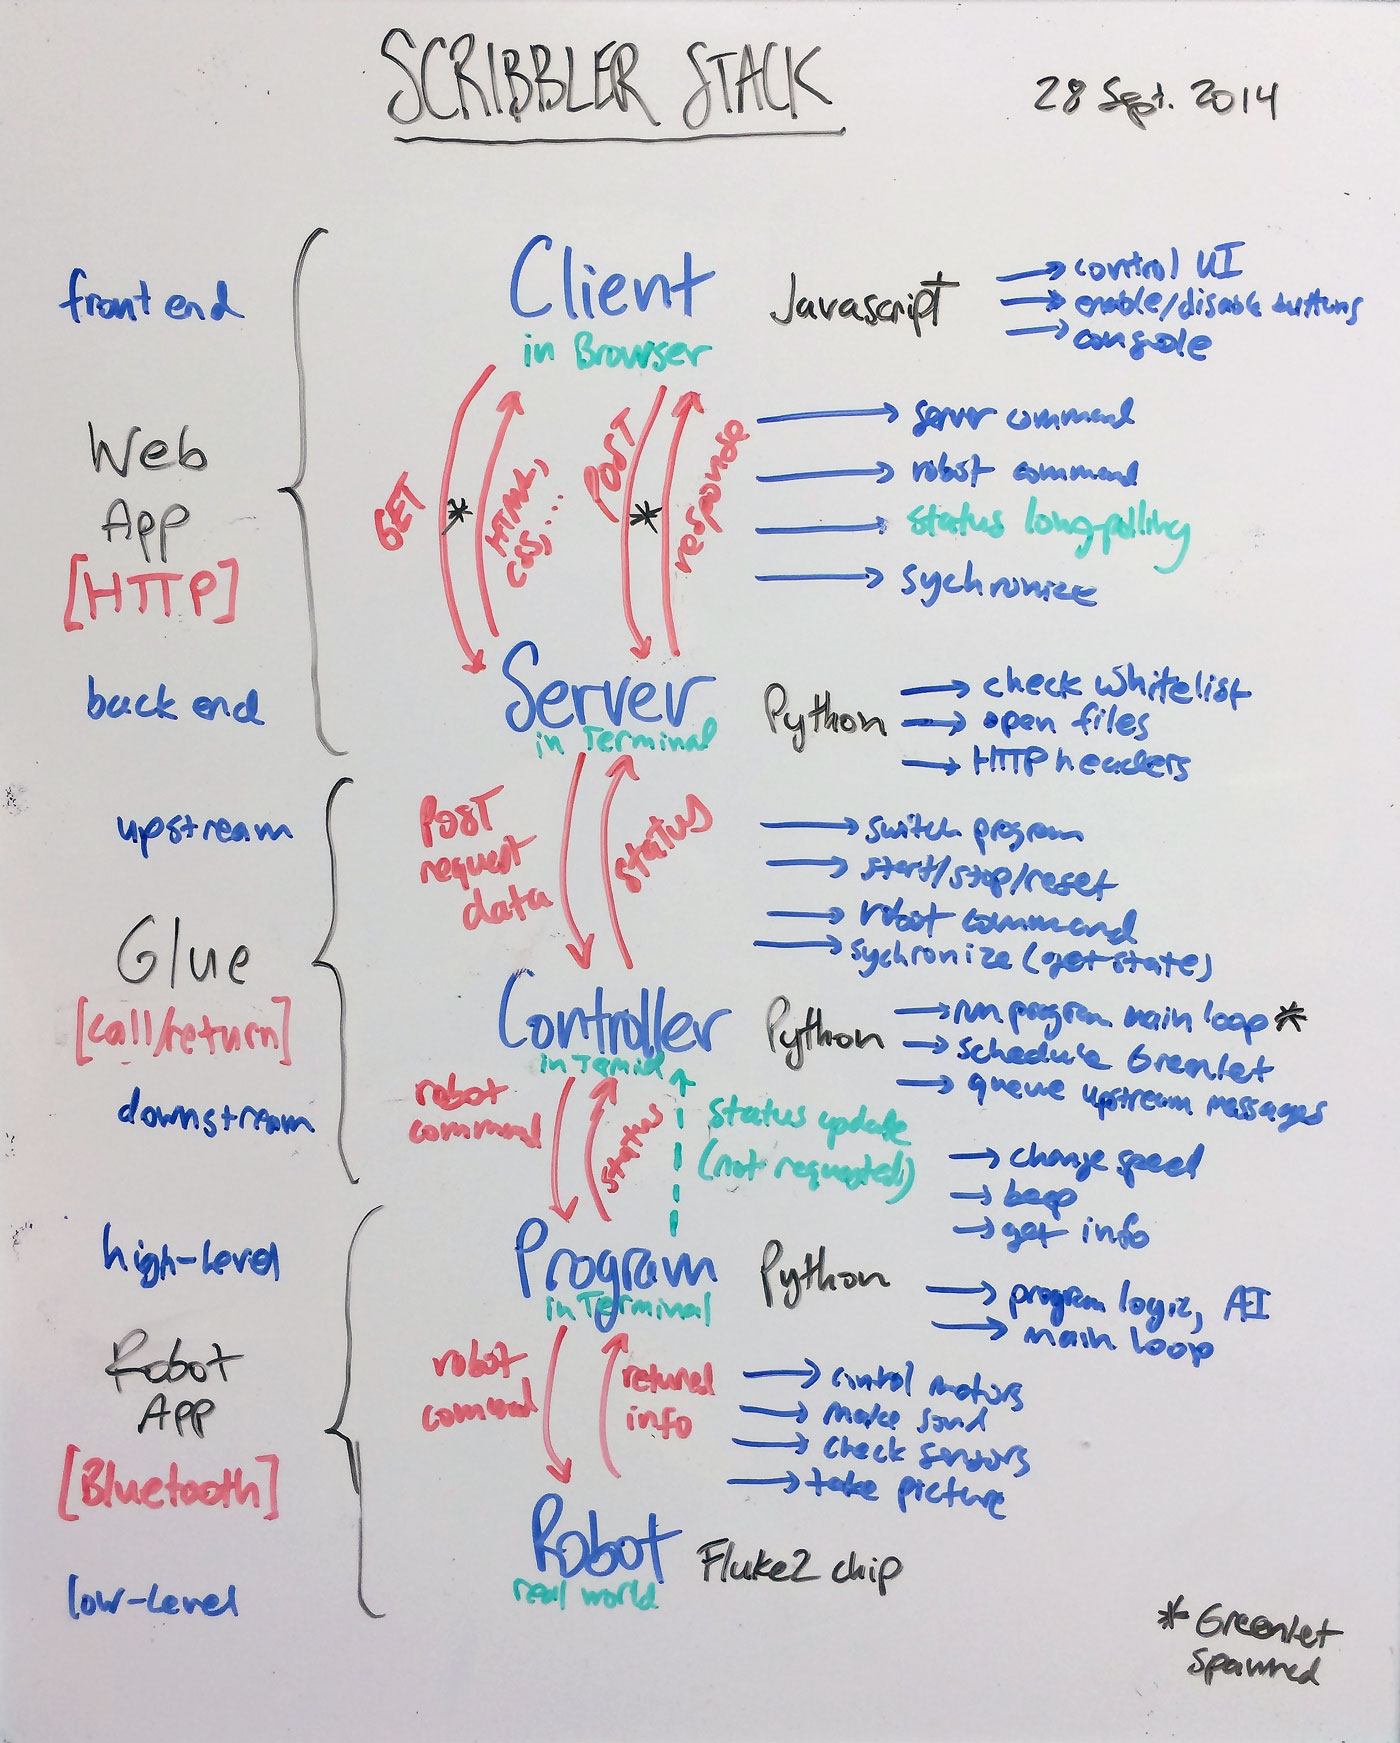 SCRIBBLER STACK
28 Sept. 2014
front end
Client
in Browser
Javascript
control UI
enable/disable buttons
console
Web
App
[HTTP]
GET
*
HTML,
CSS, ....
POST
*
response
server command
robot command
status long-polling
sychronize
back end
Server
in Terminal
Python
check whitelist
open files
HTTP headers
upstream
POST
request
data
status
switch program
start/stop/reset
robot command
sychronize (get state)
Glue
[call/return]
Controller
in Terminal
Python
run program main loop *
schedule Greenlet
queue upstream messages
downstream
robot
command
status
status update
(not requested)
change speed
beep
get info
high-level
Program
in Terminal
Python
program logic, AI
main loop
Robot
App
[Bluetooth]
robot
command
returned
info
control motors
make sound
check sensors
take picture
low-level
Robot
real world
Fluke2 chip
* Greenlet
spawned